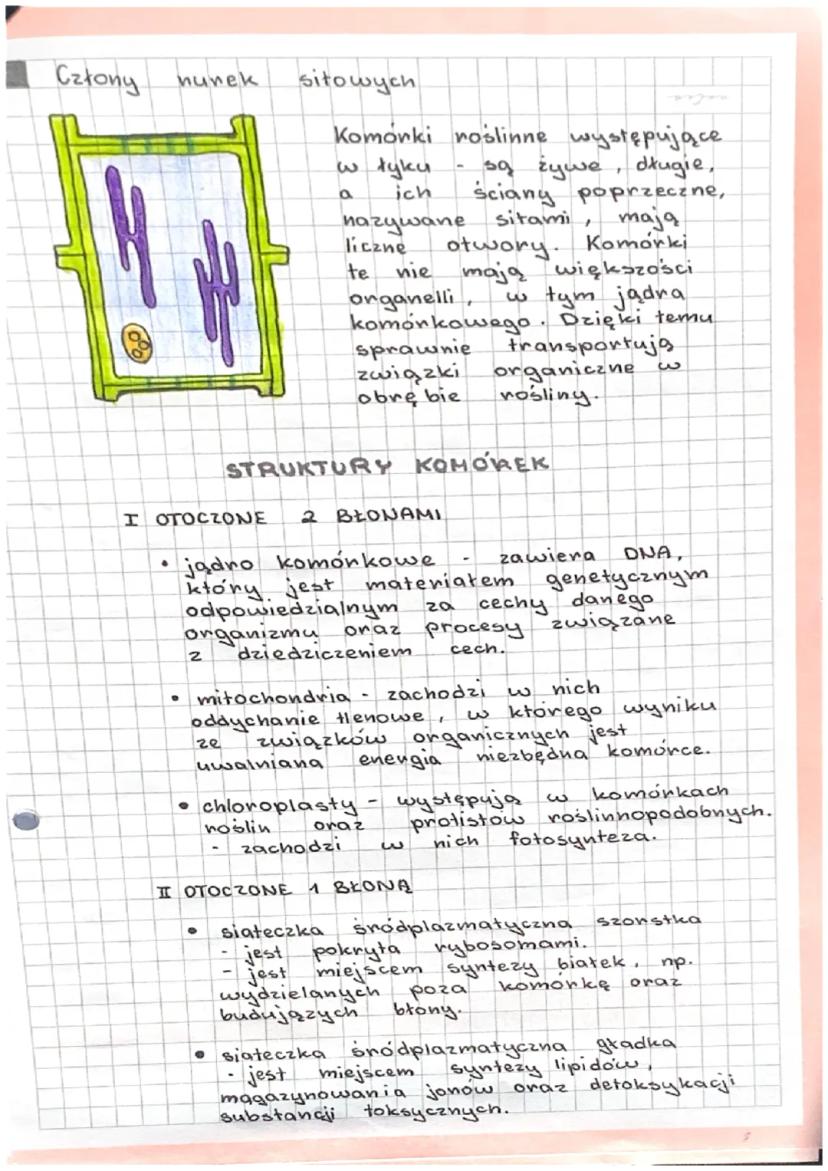 Człony rurek sitowych
Komórki roślinne występujące
w łyku - są żywe, długie,
a ich ściany poprzeczne,
nazywane sitami, mają
liczne otwory. Komórki
te nie mają większości
organelli, w tym jądra
komórkowego. Dzięki temu
sprawnie transportują
związki organiczne w
obrębie rośliny.
STRUKTURY KOMÓREK
I OTOCZONE 2 BŁONAMI
• jądro komórkowe - zawiera DNA,
który jest materiałem genetycznym
odpowiedzialnym za cechy danego
organizmu oraz procesy związane
z dziedziczeniem cech.
• mitochondria - zachodzi w nich
oddychanie tlenowe, w którego wyniku
ze związków organicznych jest
uwalniana energia niezbędna komórce.
• chloroplasty - występują w komórkach
roślin oraz protistów roślinnopodobnych.
- zachodzi w nich fotosynteza.
II OTOCZONE 1 BŁONĄ
• siateczka śródplazmatyczna szorstka
- jest pokryta rybosomami.
- jest miejscem syntezy białek, np.
wydzielanych poza komórkę oraz
budujących błony.
• siateczka śródplazmatyczna gładka
- jest miejscem syntezy lipidów,
magazynowania jonów oraz detoksykacji
substancji toksycznych.